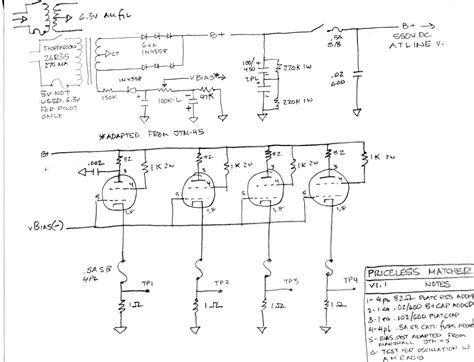 6.3V AUX FIL
THORDARSON
26R35
270 MA
5V NOT
USED, 6.3V
FOR PILOT
ONLY
CT
6 EA
1N4358
B+
1N4358
150K
VBIAS*
100K-L
47K
100/
450
2PL
220K 1W
220K 1W
.5A
S/B
B+
550VDC
AT LINE V.
.02
600
*ADAPTED FROM JTM-45
B+
.002
82
1K 2W
82
1K 2W
82
1K 2W
82
1K 2W
3
4
5
1,8
3
4
5
1,8
3
4
5
1,8
3
4
5
1,8
VBIAS(-)
.5A SB
4PL
TP1
TP2
TP3
TP4
1Ω
1Ω
1Ω
1Ω
PRICELESS MATCHER
V1.1 NOTES
1- 4PL 82Ω PLATE RES ADDED
2- 1 EA .02/600 B+ CAP ADDED
3- 1 EA .002/600 PLATE CAP
4- 4PL .5A SB CATH FUSE ADDED
5- BIAS SYST ADAPTED FROM
MARSHALL JTM-45
6- TEST FOR OSCILLATION W/
AM RADIO